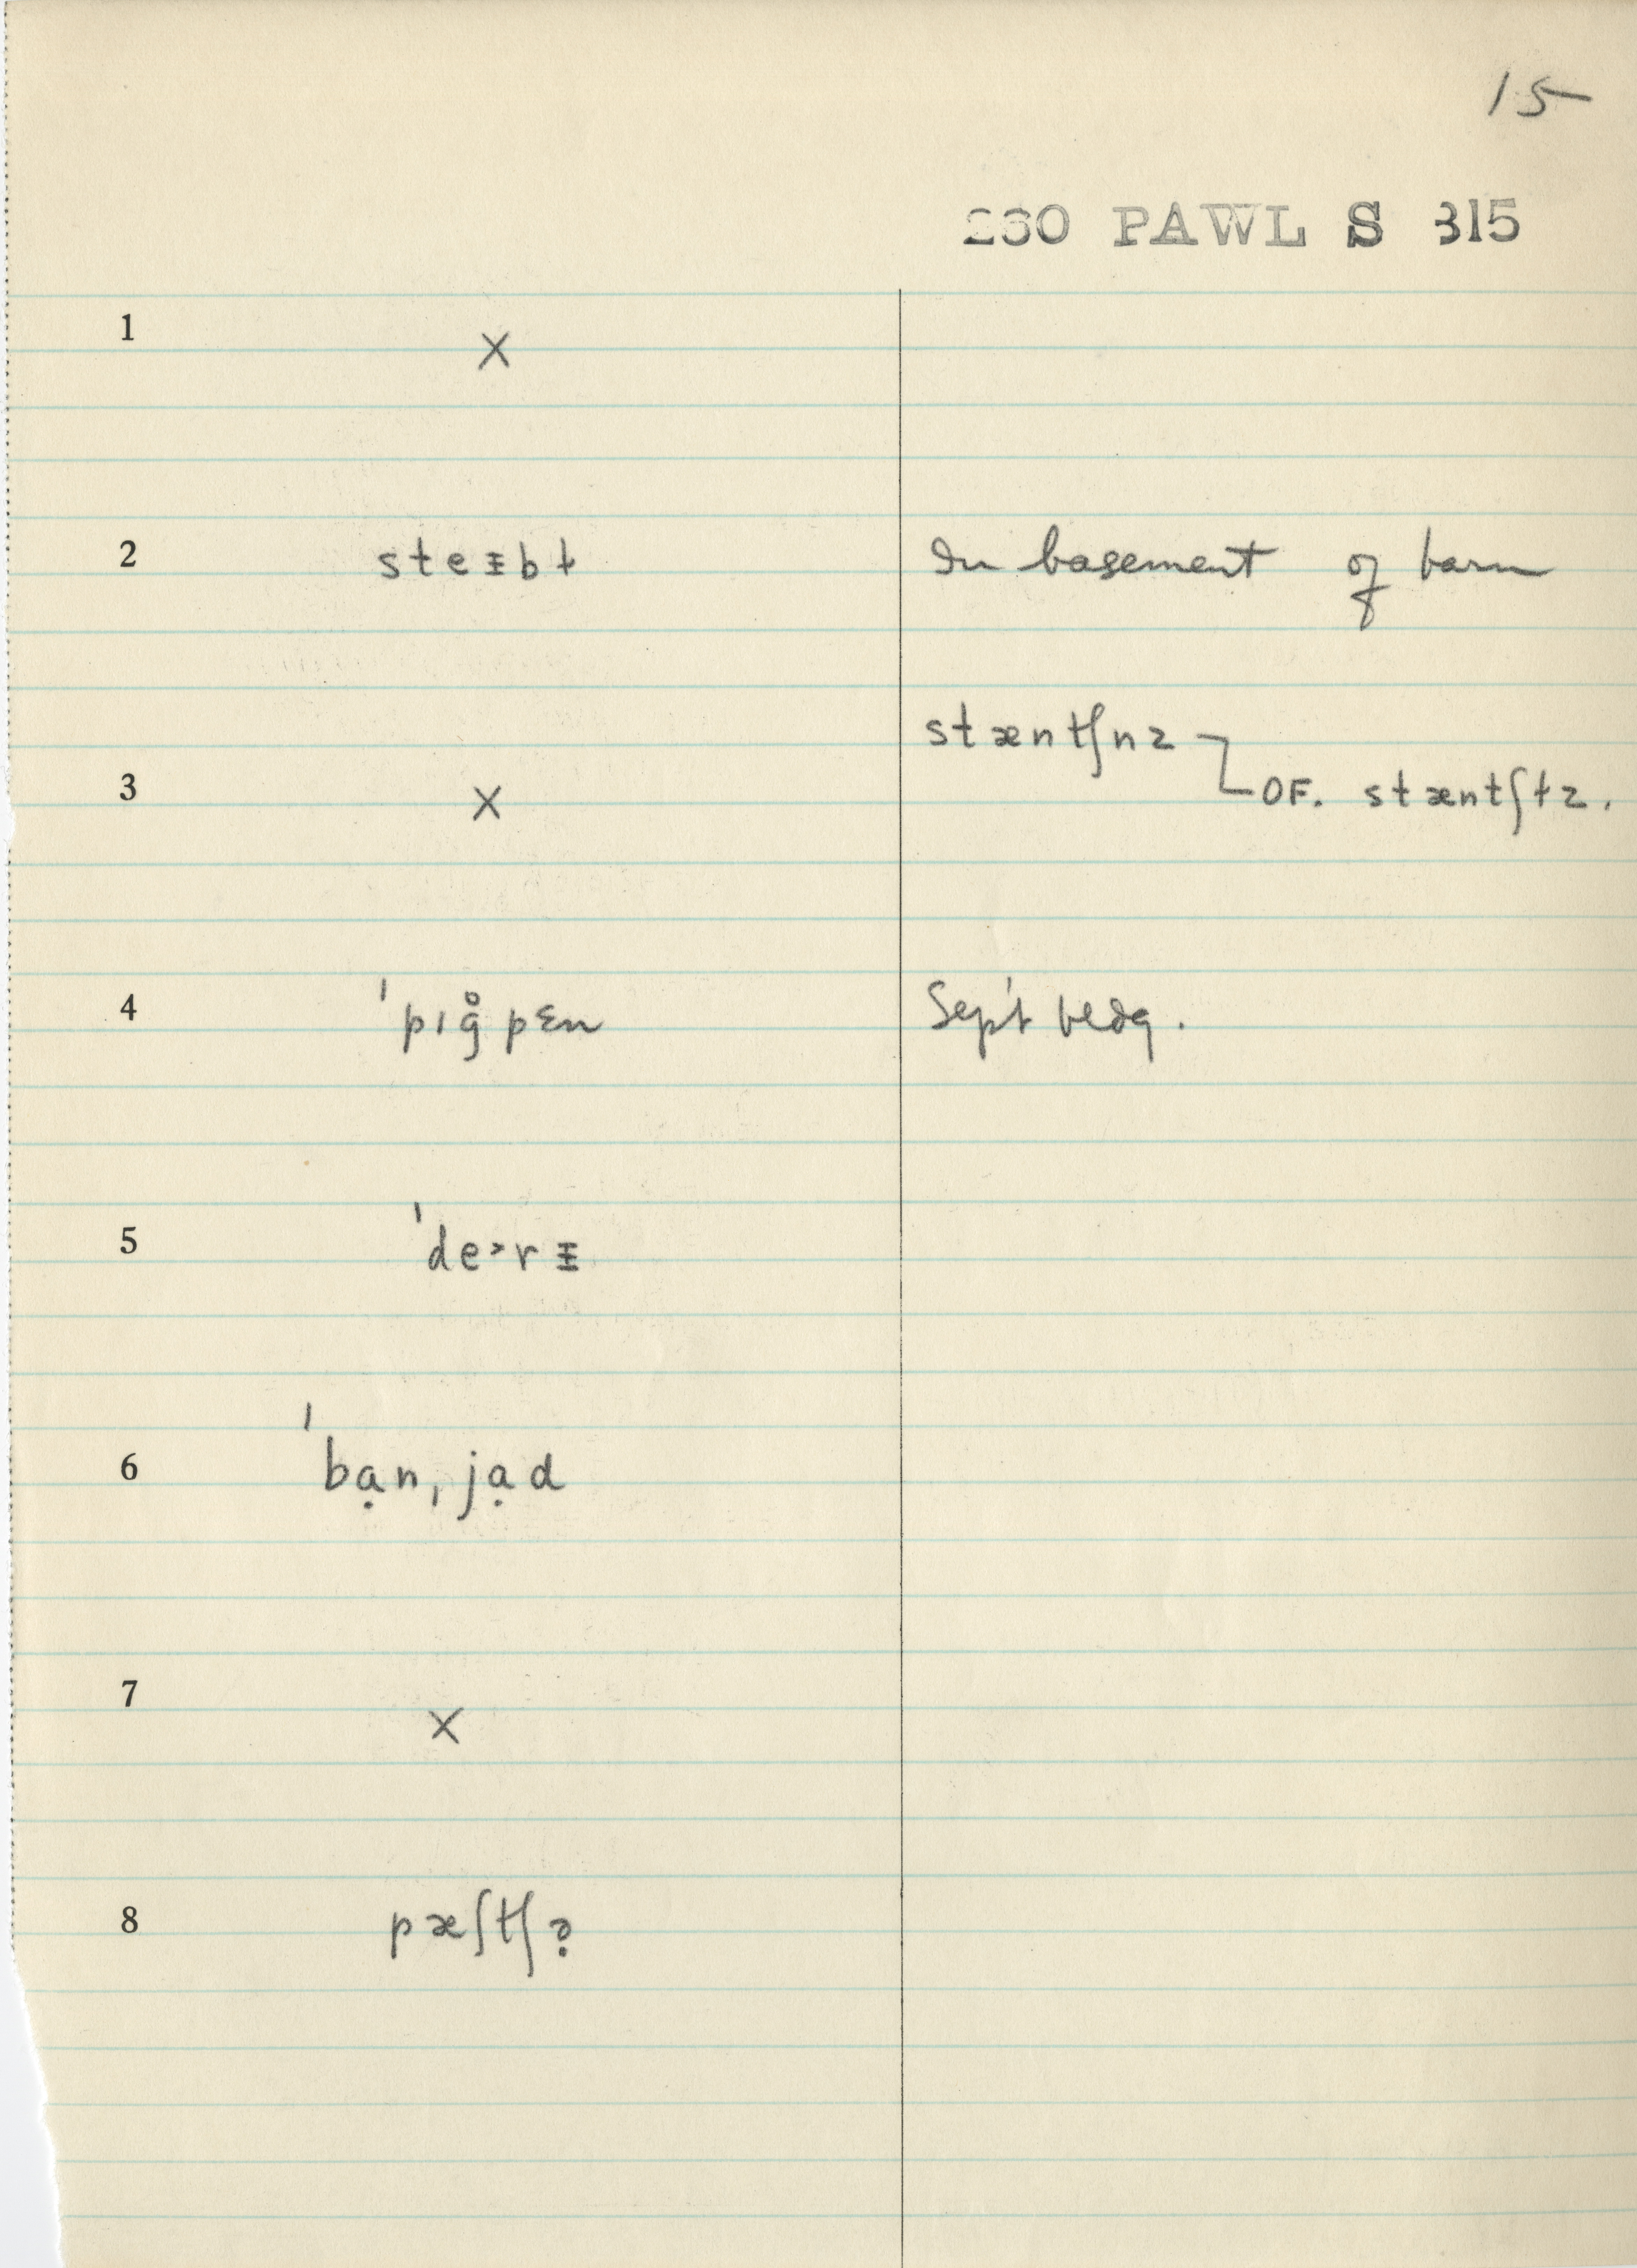 15
230 PAWL S 315
1 X
2 steᵻbɫ In basement of barn
stæntʃnz
3 X OF. stæntʃɫz.
4 ˈpɪg̊pɛn Sep't bldg.
5 ˈde˃rᵻ
6 ˈbạnˌjạd
7 X
8 pæʃtʃə̣